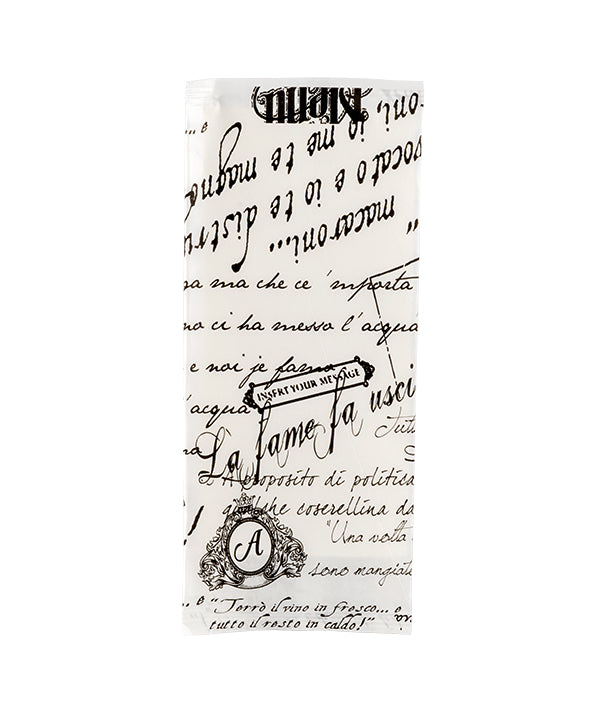 Menu
...e
oni, io me te magno
vocato e io te distru
"macaroni...
pa ma che ce 'mporta
mo ci ha messo l'acqua
e noi je famo
INSERT YOUR MESSAGE
l'acqua
La fame fa usci
Tutt
A proposito di politica
qualche coserellina da
"Una volta
A
sono mangiate
... e "Terrò il vino in fresco... e
tutto il resto in caldo!"